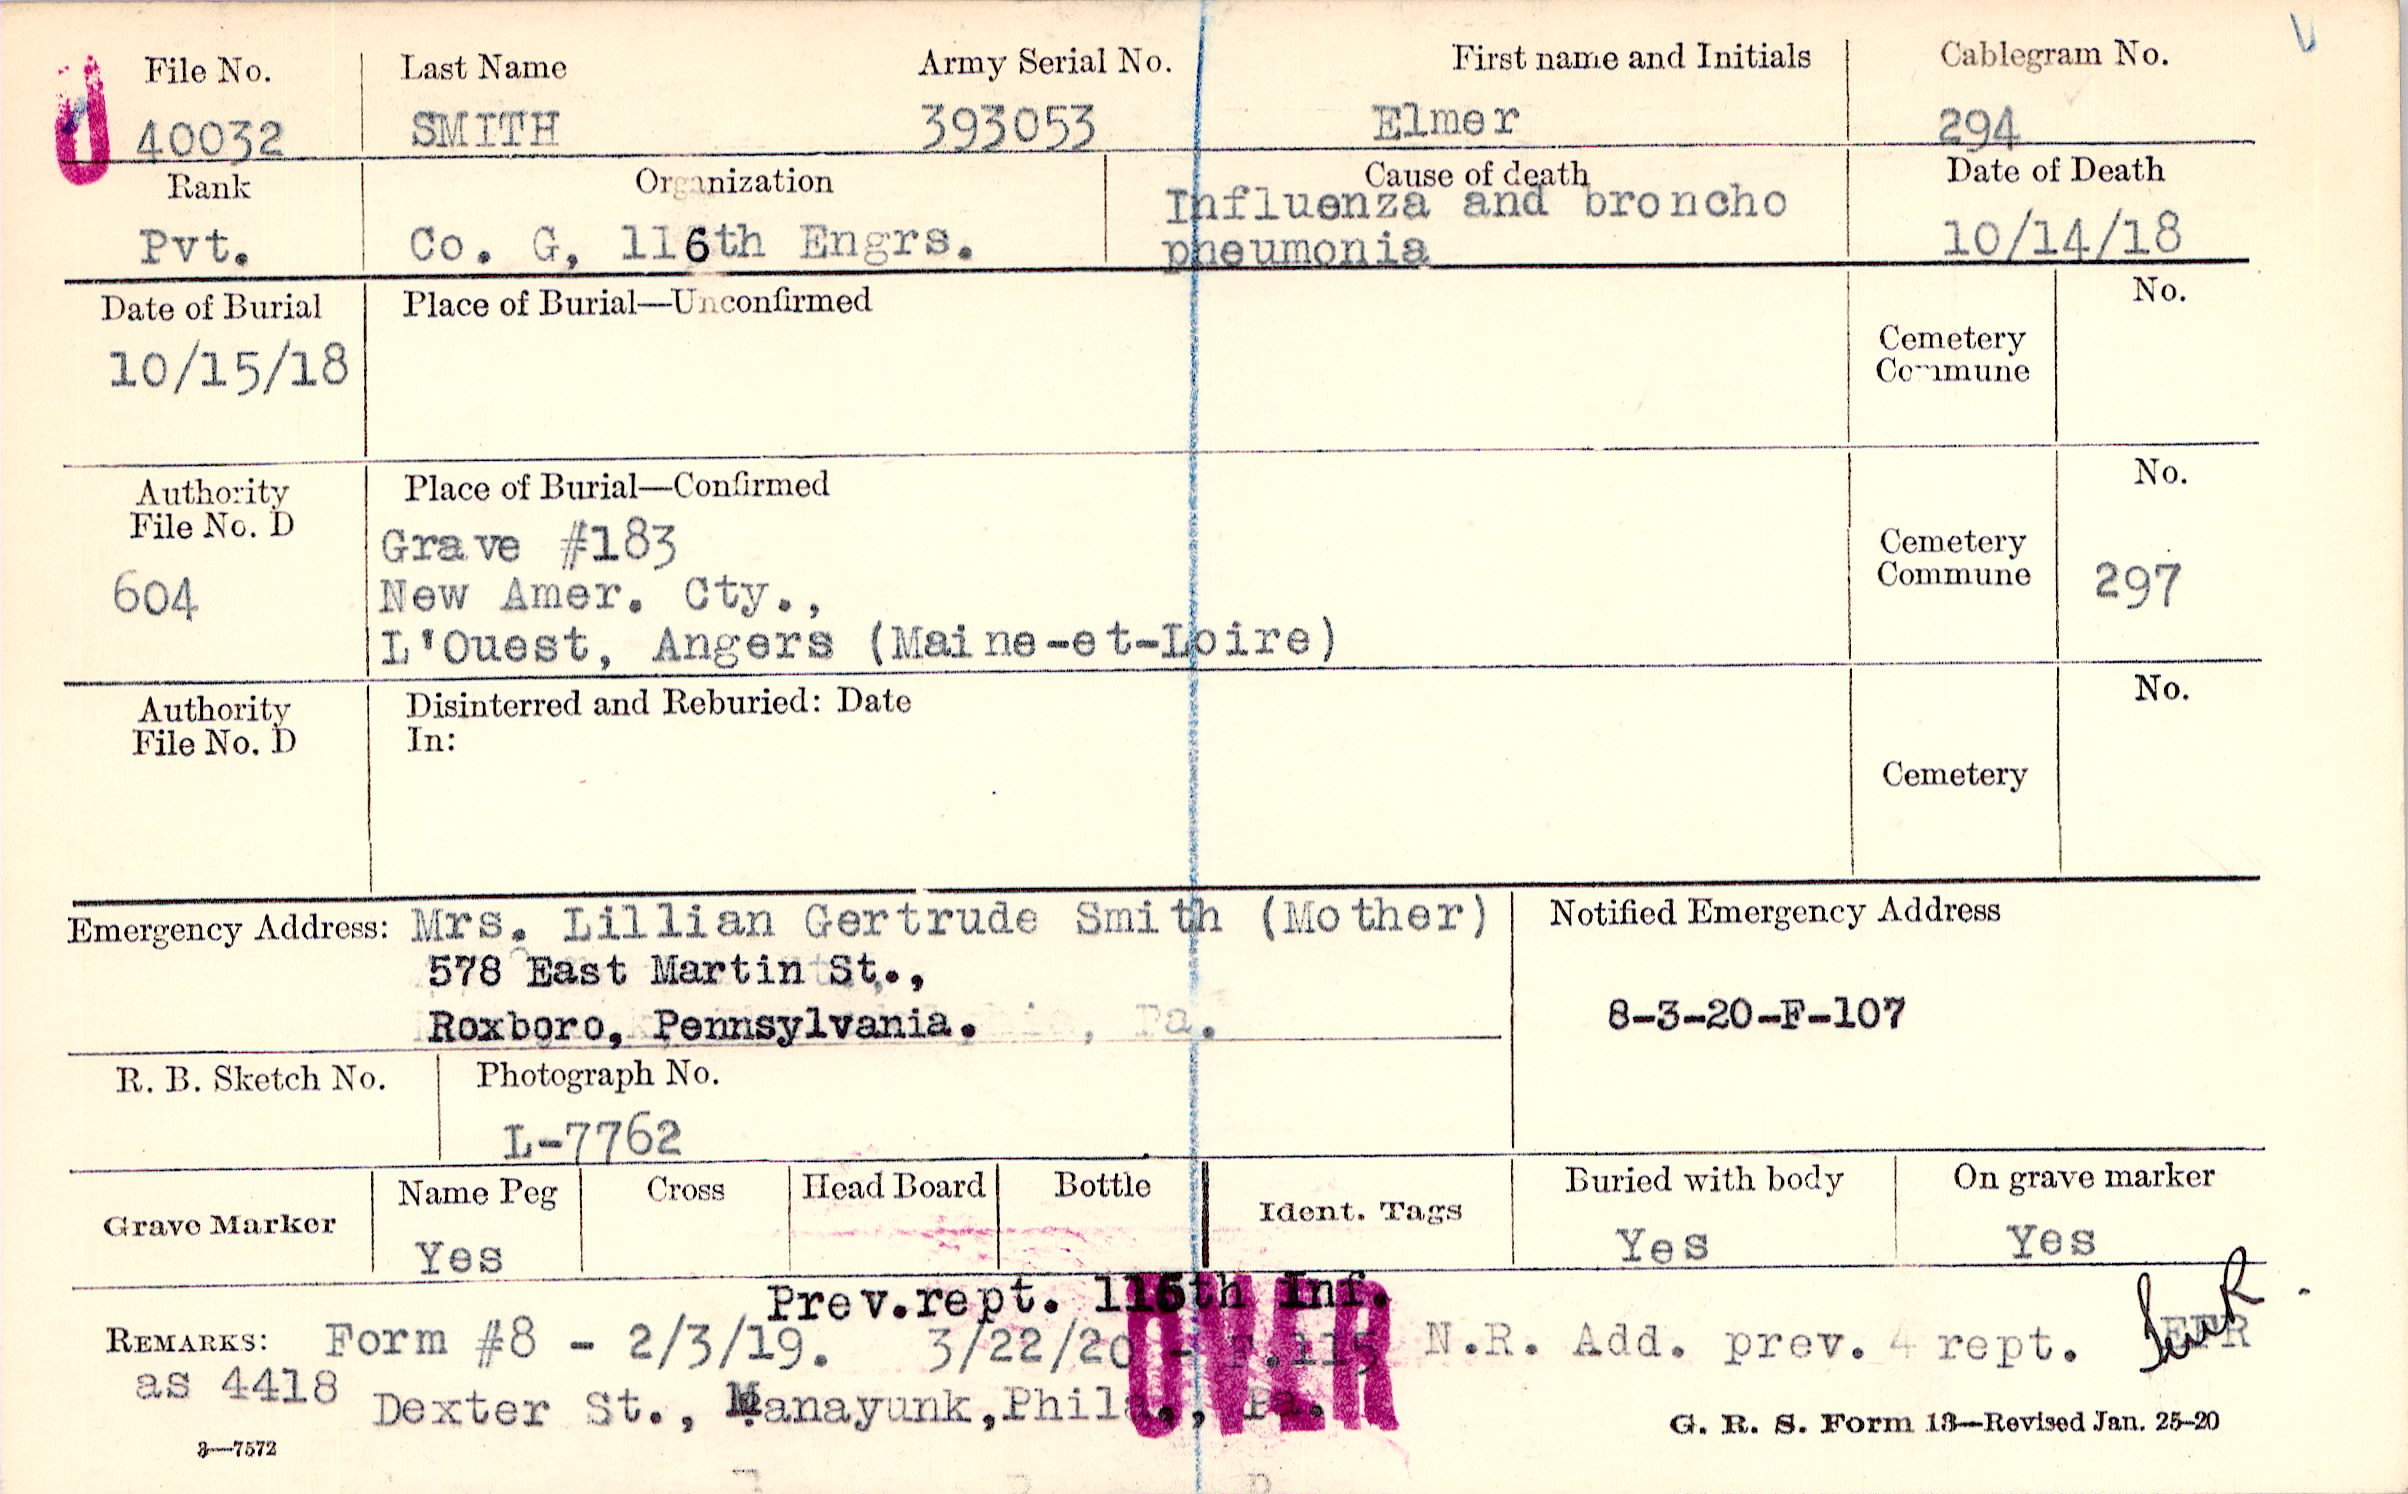 File No. Last Name Army Serial No. First name and Initials Cablegram No.
40032 SMITH 393053 Elmer 294
Rank Organization Cause of death Date of Death
Pvt. Co. G, 116th Engrs. Influenza and broncho pneumonia 10/14/18
Date of Burial Place of Burial—Unconfirmed No.
10/15/18 Cemetery
Commune
Authority Place of Burial—Confirmed No.
File No. D
604 Grave #183 Cemetery
New Amer. Cty., Commune 297
L'Ouest, Angers (Maine-et-Loire)
Authority Disinterred and Reburied: Date No.
File No. D In:
Cemetery
Emergency Address: Mrs. Lillian Gertrude Smith (Mother) Notified Emergency Address
578 East Martin St.,
Roxboro, Pennsylvania. , Pa. 8-3-20-F-107
R. B. Sketch No. Photograph No.
L-7762
Grave Marker Name Peg Cross Head Board Bottle Ident. Tags Buried with body On grave marker
Yes Yes Yes
Prev.rept. 116th Inf.
REMARKS: Form #8 - 2/3/19. 3/22/20 - F.115 N.R. Add. prev. 4 rept. EFR
as 4418 Dexter St., Manayunk, Phila., Pa.
OVER
3—7572 G. R. S. Form 13—Revised Jan. 25-20